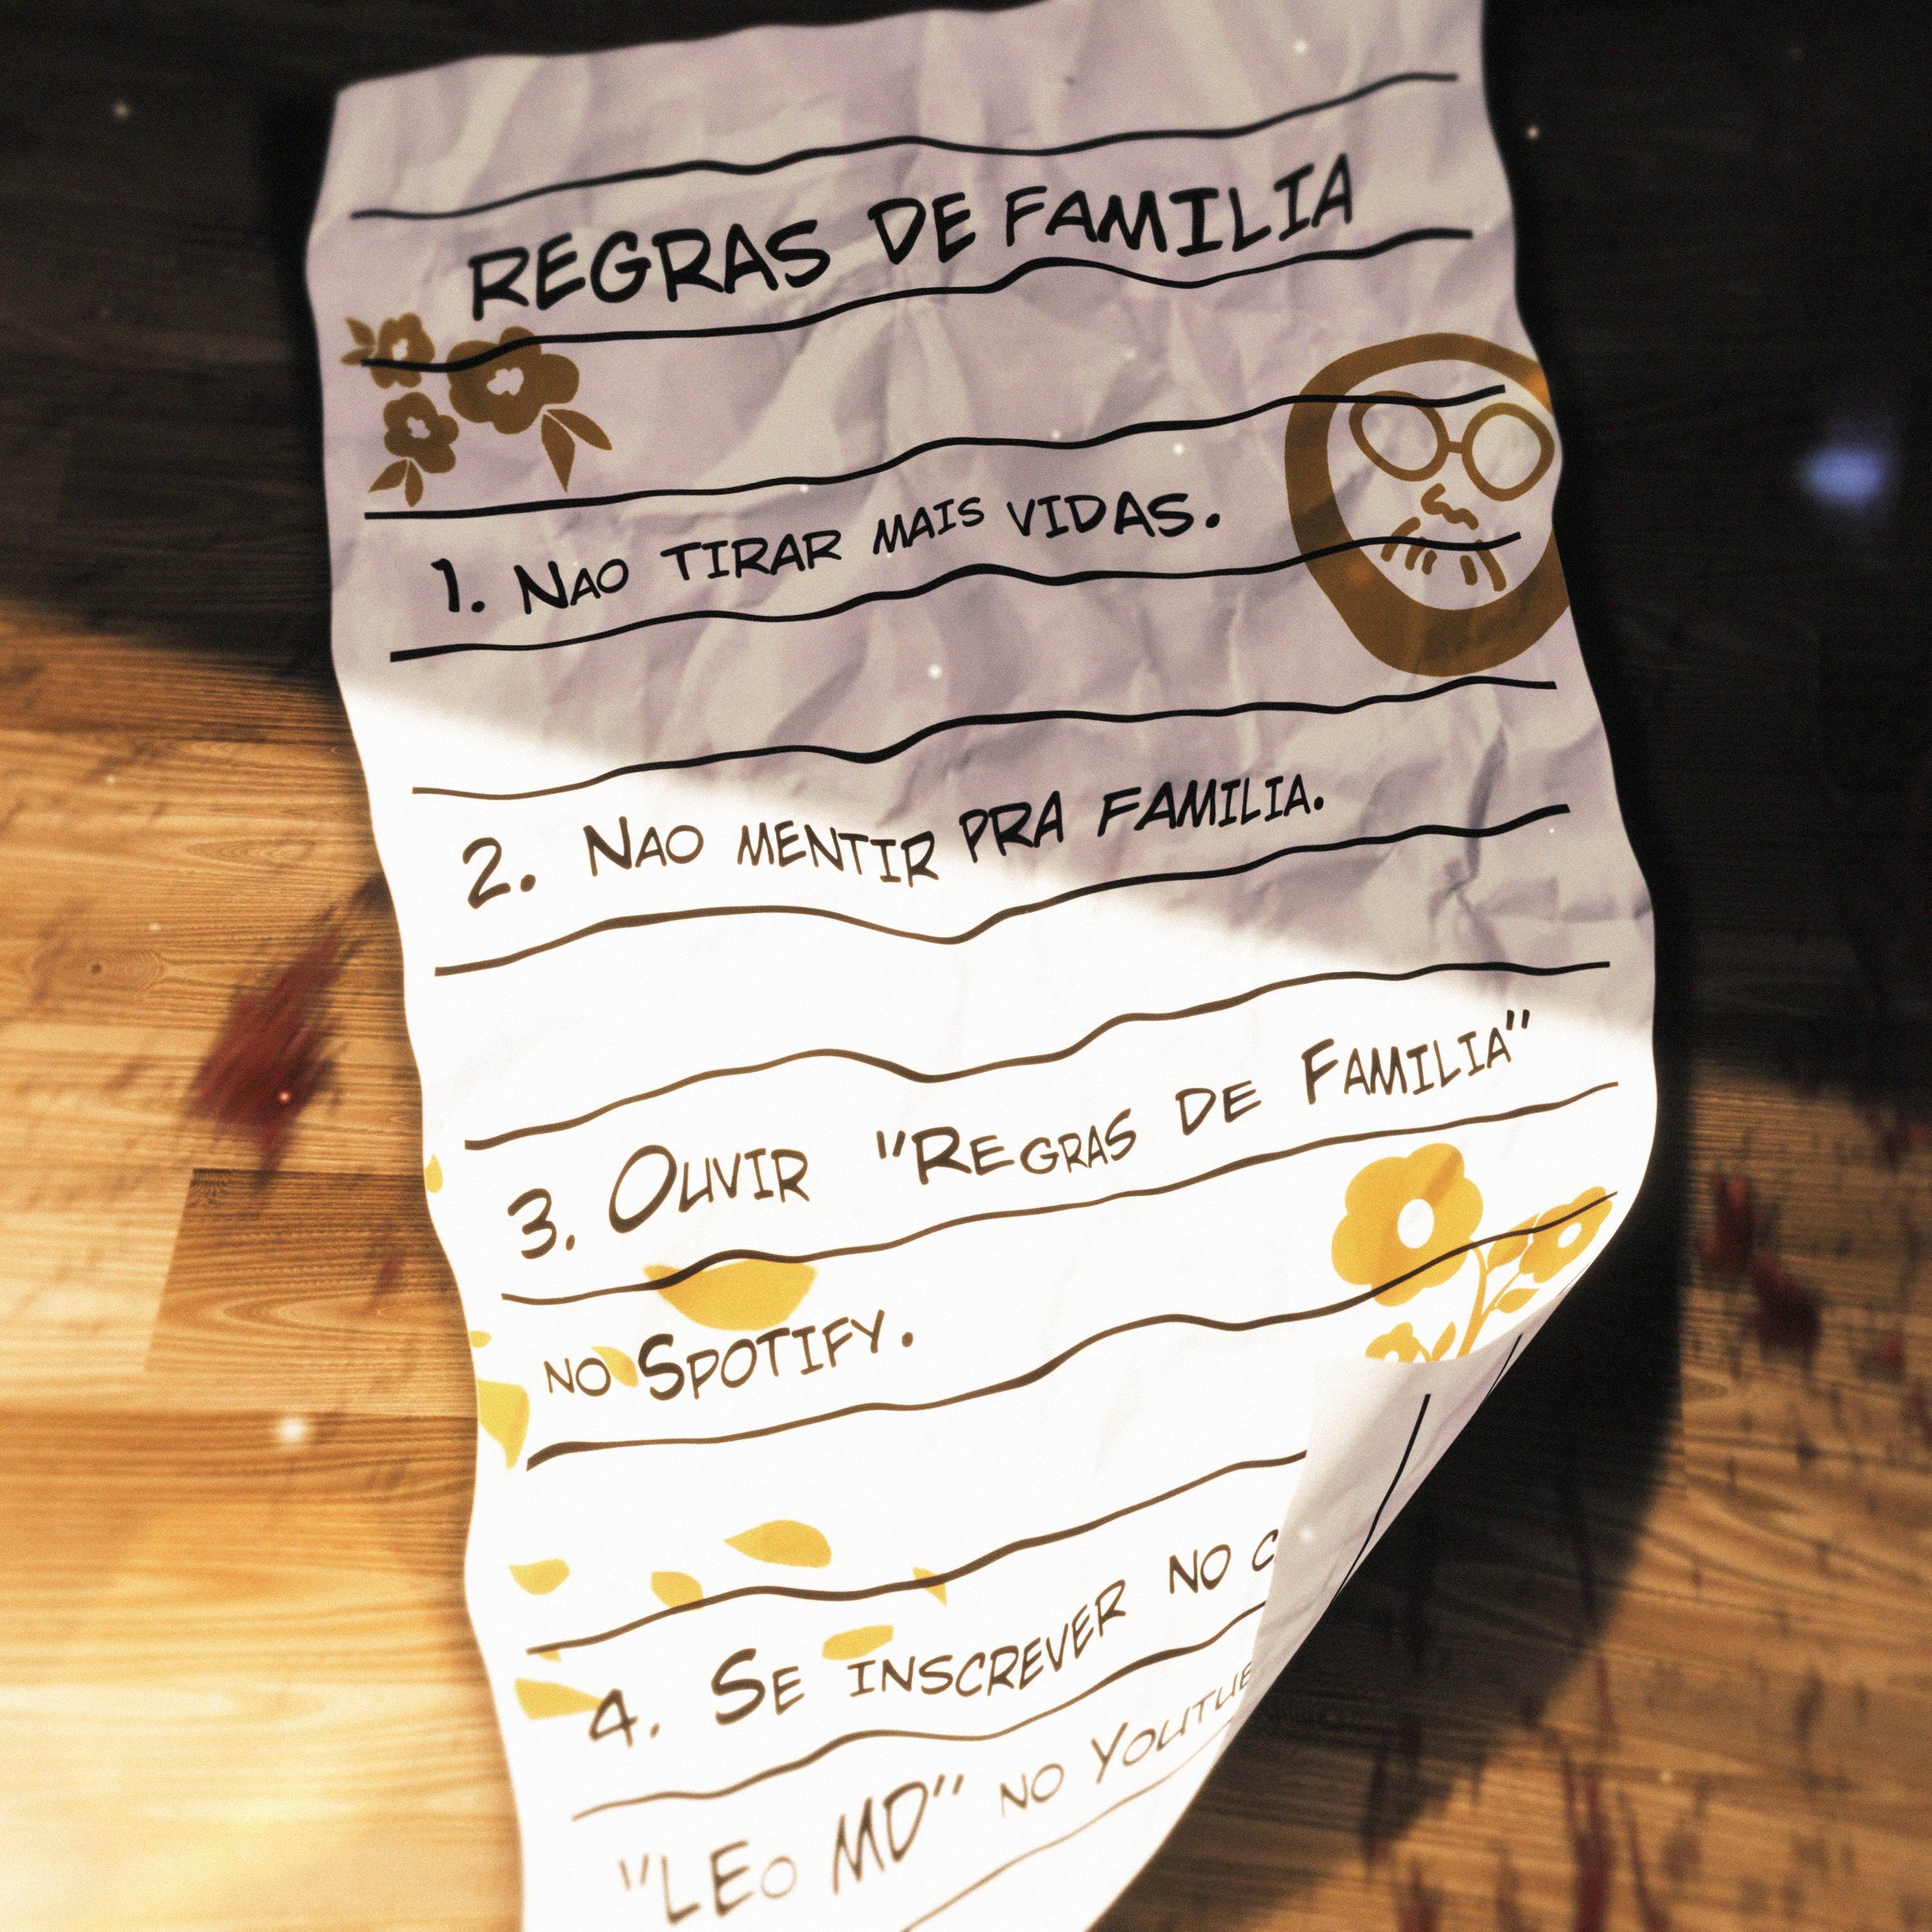 REGRAS DE FAMILIA
1. NAO TIRAR MAIS VIDAS.
2. NAO MENTIR PRA FAMILIA.
3. OUVIR "REGRAS DE FAMILIA"
NO SPOTIFY.
4. SE INSCREVER NO C
"LEO MD" NO YOUTUB